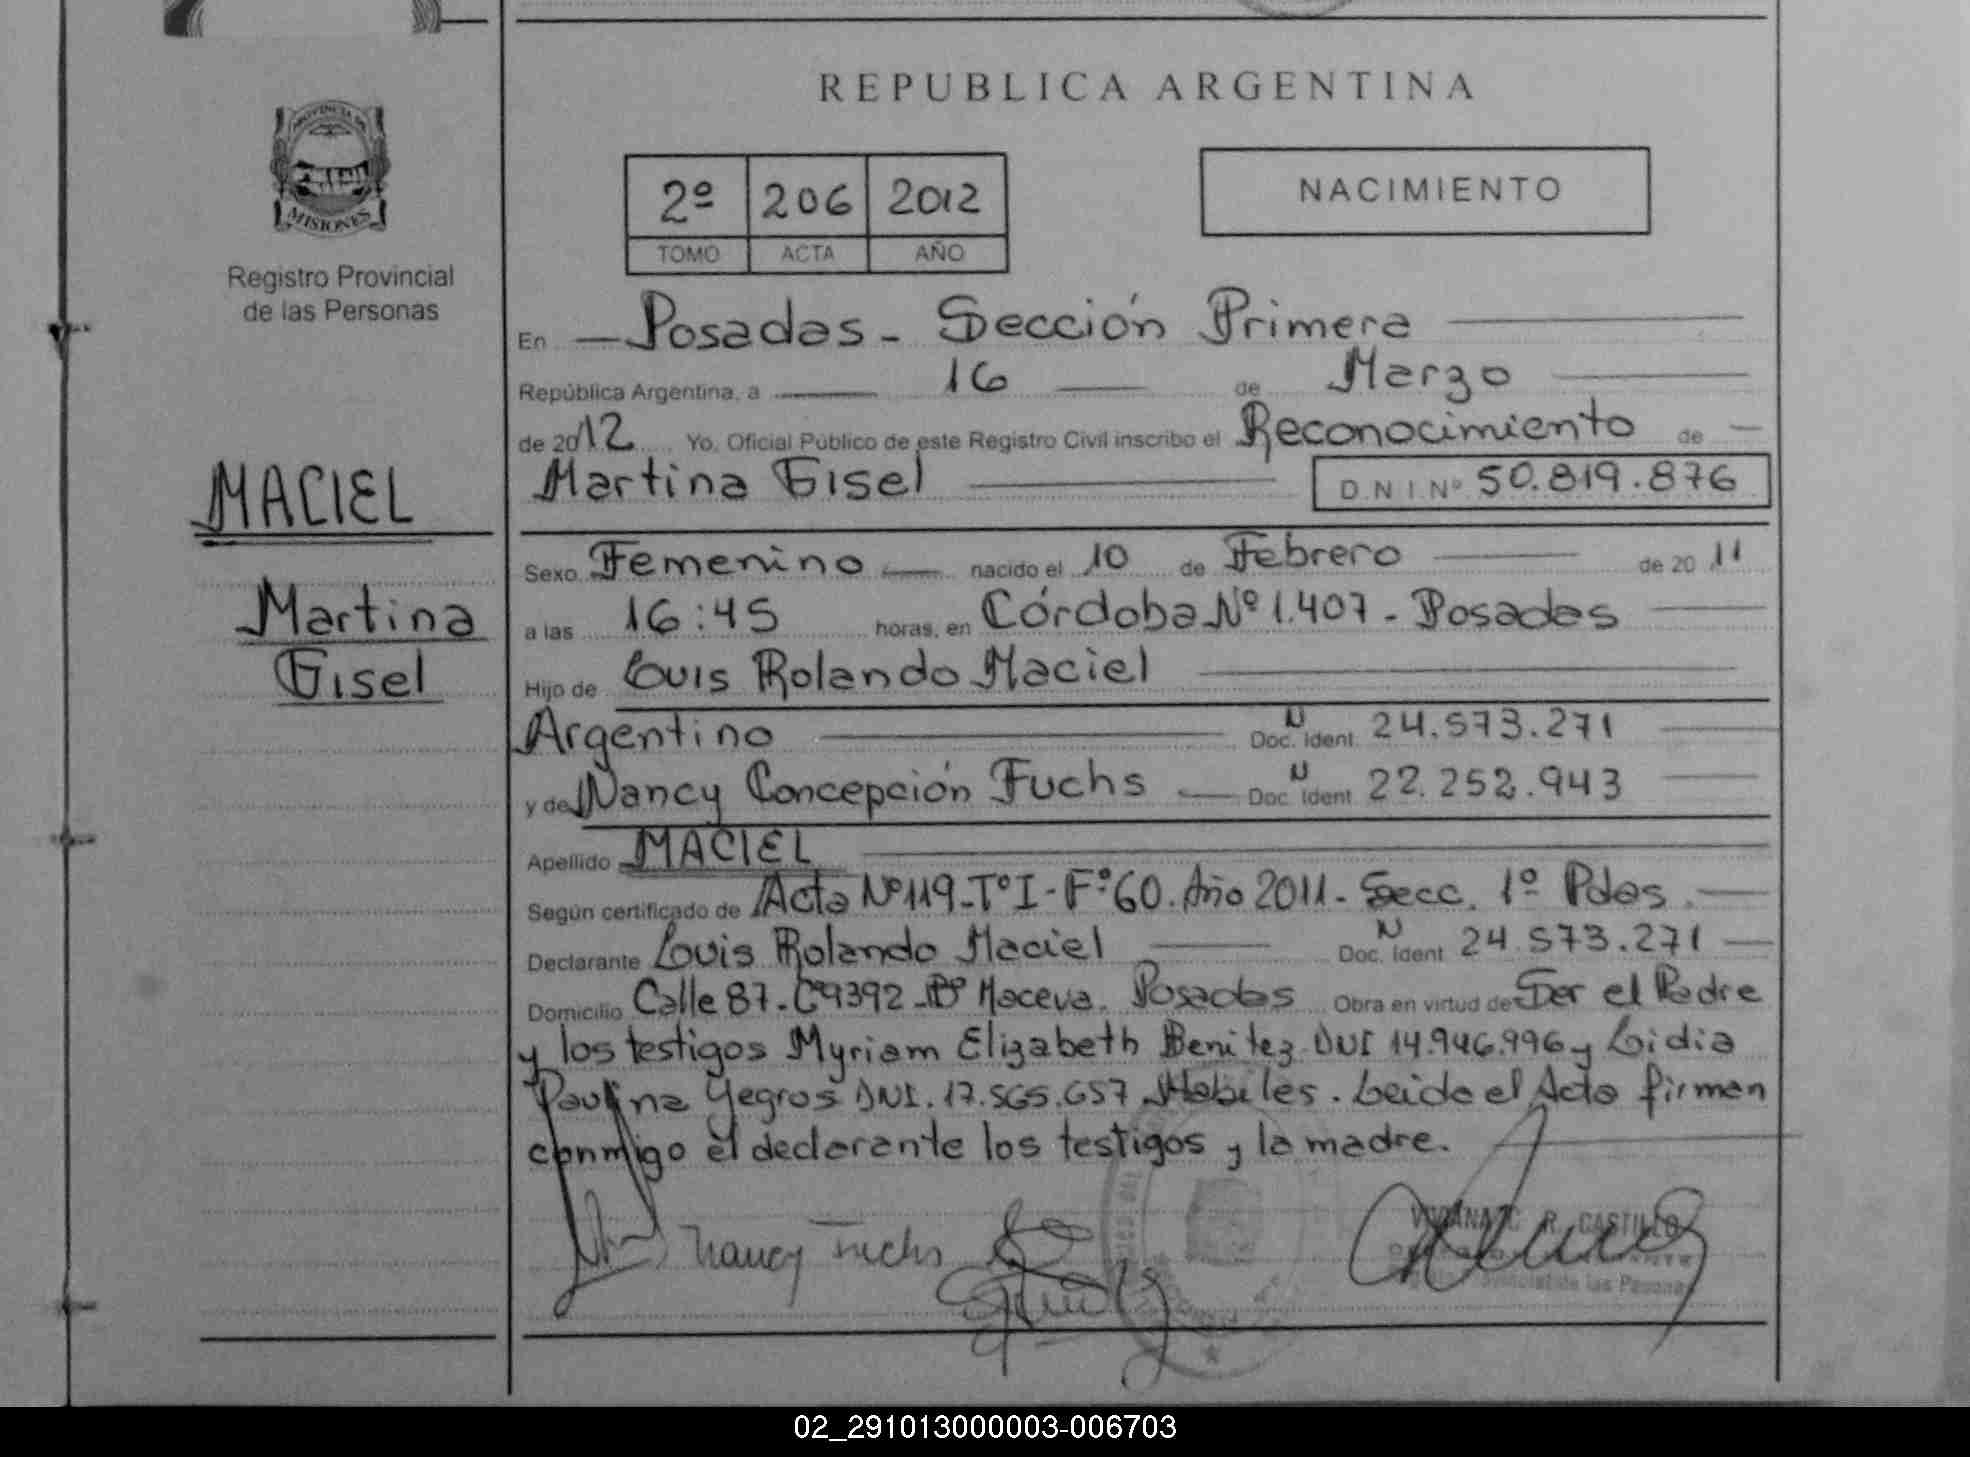 REPUBLICA ARGENTINA
PROVINCIA DE
MISIONES
Registro Provincial
de las Personas
2º 206 2012
TOMO ACTA AÑO
NACIMIENTO
En Posadas - Sección Primera
República Argentina, a 16 de Marzo
de 2012 Yo, Oficial Público de este Registro Civil inscribo el Reconocimiento de
Martina Gisel D N I Nº 50.819.876
MACIEL
Martina
Gisel
Sexo Femenino nacido el 10 de Febrero de 20 11
a las 16:45 horas, en Córdoba Nº 1.407 - Posadas
Hijo de Luis Rolando Maciel
Argentino Doc. Ident. N 24.573.271
y de Nancy Concepción Fuchs Doc. Ident N 22.252.943
Apellido MACIEL
Según certificado de Acta Nº 119 - Tº I - Fº 60. Año 2011 - Secc. 1º Pdas.
Declarante Luis Rolando Maciel Doc. Ident N 24.573.271
Domicilio Calle 87 - Cº 9392 - Bº Posadas Obra en virtud de Ser el Padre
y los testigos Myriam Elizabeth Benitez DNI 14.946.996 y Lidia
Paulina Yegros DNI. 17.565.657 Habiles. Leida el Acta firman
conmigo el declarante los testigos y la madre.
Nancy Fuchs
R. CASTILLO
Provincial de las Personas
02_291013000003-006703